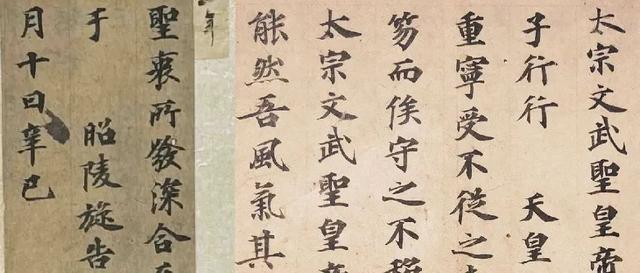 太宗文武聖皇帝
子行行　天皇
重寧受不從之
笏而俟守之不
太宗文武聖皇帝
能然吾風氣其
年
聖衷所發深合
于　昭陵旋告
月十日辛巳